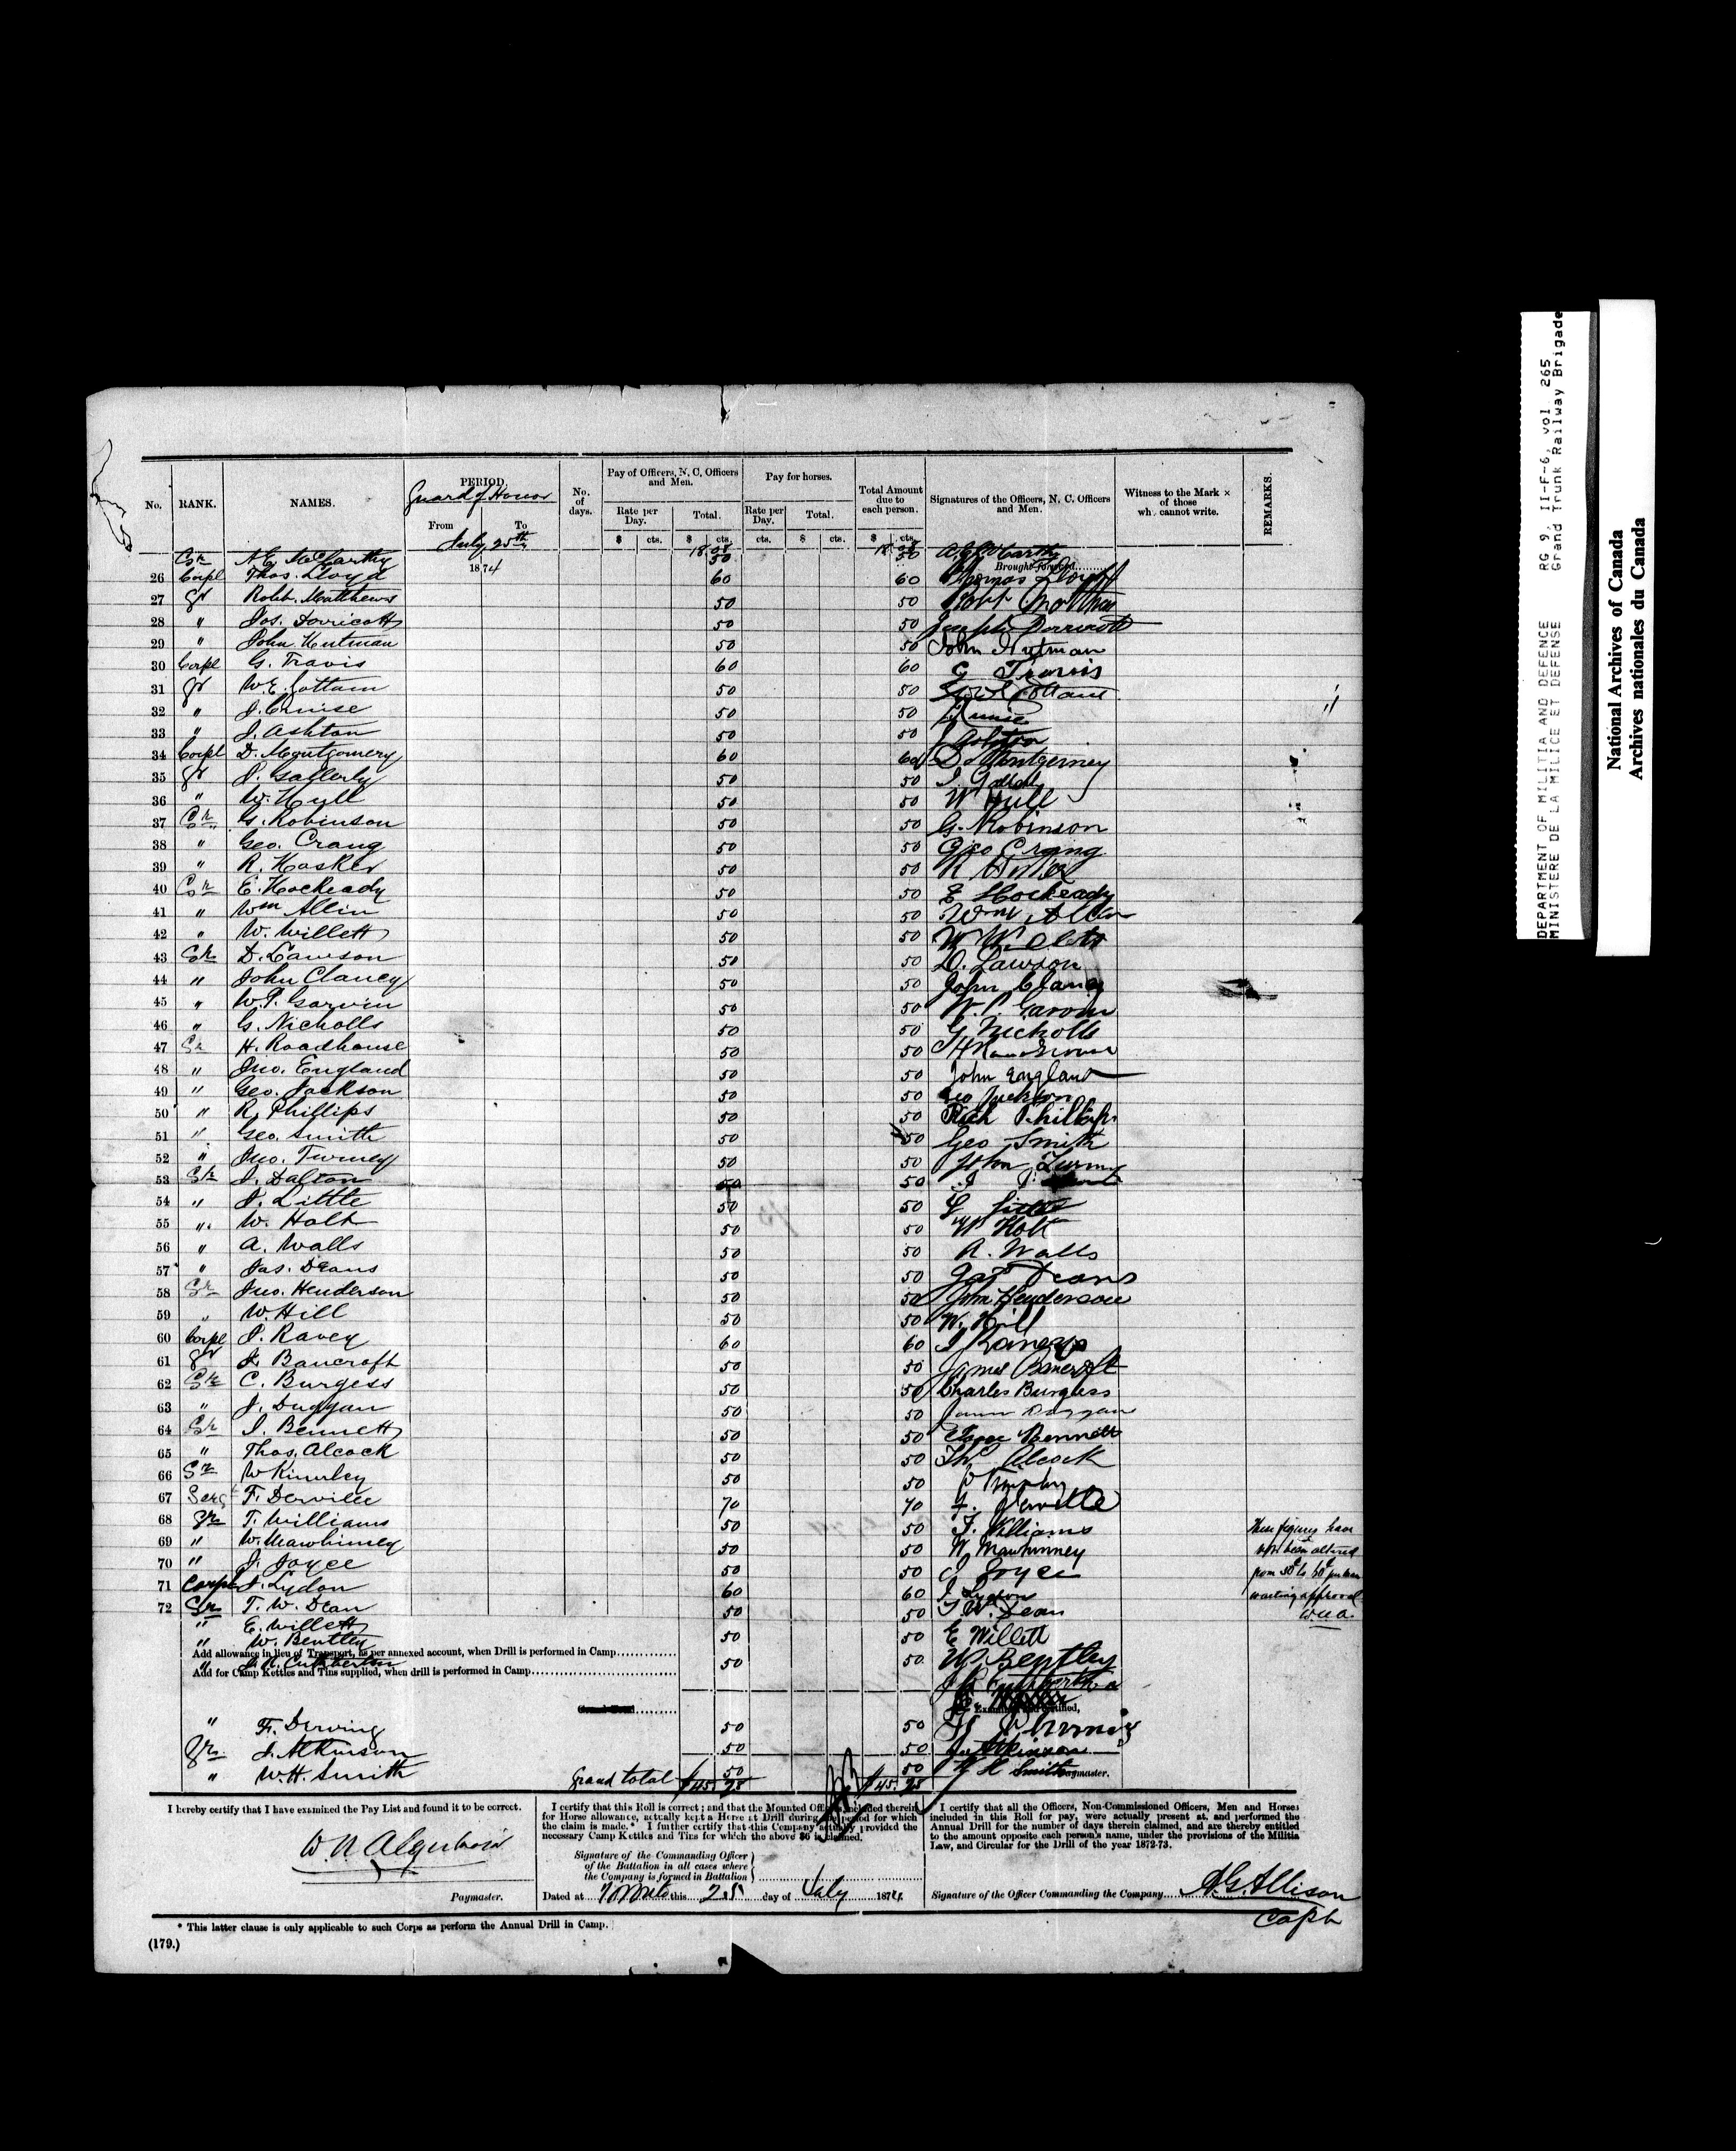 No. RANK. NAMES. PERIOD No. of days. Pay of Officers, N. C. Officers and Men. Pay for horses. Total Amount due to each person. Signatures of the Officers, N. C. Officers and Men. Witness to the Mark × of those who cannot write. REMARKS.
Guard of Honor
From To Rate per Day. Total. Rate per Day. Total.
July 25th
1874
$ cts. $ cts. cts. $ cts. $ cts.
18.08 18.08
Brought forward
Gr N.E. McCarthy 50 50
26 Corpl Thos. Lloyd 60 60 Thomas Lloyd
27 Gr Robt. Matthews 50 50
28 " Jos. Dorricott 50 50 Joseph Dorricott
29 " John Hutman 50 50 John Hutman
30 Corpl G. Travis 60 60 G Travis
31 Gr W.E. Cottam 50 50
32 " J. Cruise 50 50
33 " J. Ashton 50 50 J Ashton
34 Corpl D. Montgomery 60 60 D Montgomery
35 Gr 50 50
36 " W. Hull 50 50 W Hull
37 Gr G. Robinson 50 50 G. Robinson
38 " Geo. Crang 50 50 Geo Crang
39 " R. Hasker 50 50
40 Gr E. Hockeady 50 50 E Hockeady
41 " Wm Allin 50 50 Wm Allin
42 " W. Willett 50 50
43 Gr D. Lawson 50 50 D. Lawson
44 " John Clancy 50 50 John Clancy
45 " W.P. Garvin 50 50 W.P. Garvin
46 " G. Nicholls 50 50 G Nicholls
47 Gr H. Roadhouse 50 50
48 " Jno. England 50 50 John England
49 " Geo. Jackson 50 50 Geo Jackson
50 " R. Phillips 50 50 Rich Phillips
51 " Geo. Smith 50 50 Geo Smith
52 " Jno. Turney 50 50 John
53 Gr J. Dalton 50 50
54 " J. Little 50 50 Little
55 " W. Holt 50 50 W Holt
56 " A. Walls 50 50 A. Walls
57 " Jas. Deans 50 50 Jas Deans
58 Gr Jno. Henderson 50 50 Jno Henderson
59 " W. Hill 50 50 W. Hill
60 Corpl J. Ravey 60 60
61 Gr J. Bancroft 50 50 James Bancroft
62 Gr C. Burgess 50 50 Charles Burgess
63 " J. Duggan 50 50 Duggan
64 Gr I. Bennett 50 50 Bennett
65 " Thos. Alcock 50 50 Alcock
66 Gr W Kimrley 50 50
67 Sergt F. Derville 70 70 F. Derville
68 Gr T. Williams 50 50 T. Williams
69 " W. Mawhinney 50 50 W Mawhinney
70 " J. Joyce 50 50 J Joyce
71 Corpl J. Lydon 60 60 J Lydon
72 Gr T. W. Dean 50 50 T W. Dean
" E. Willett 50 50 E Willett
" W. Bentley 50 50 W. Bentley
" J.R. Cuthberton
These figures have
not been altered
from 50 to 60
waiting approval
W.N.A.
Add allowance in lieu of Transport, as per annexed account, when Drill is performed in Camp
Add for Camp Kettles and Tins supplied, when drill is performed in Camp
Examined and certified,
" F. Derving 50 50
Gr J. Atkinson 50 50 Atkinson
" W.H. Smith 50 50 W H Smith
Paymaster.
Grand total $45.28 $45.28
I hereby certify that I have examined the Pay List and found it to be correct.
Paymaster.
I certify that this Roll is correct; and that the Mounted Officers included therein
for Horse allowance, actually kept a Horse at Drill during the period for which
the claim is made.* I further certify that this Company actually provided the
necessary Camp Kettles and Tins for which the above $6 is claimed.
Signature of the Commanding Officer
of the Battalion in all cases where
the Company is formed in Battalion
Dated at Toronto this 25 day of July 1874.
I certify that all the Officers, Non-Commissioned Officers, Men and Horses
included in this Roll for pay, were actually present at, and performed the
Annual Drill for the number of days therein claimed, and are thereby entitled
to the amount opposite each person's name, under the provisions of the Militia
Law, and Circular for the Drill of the year 1872-73.
Signature of the Officer Commanding the Company A.G. Allison
Capt
* This latter clause is only applicable to such Corps as perform the Annual Drill in Camp.
(179.)
DEPARTMENT OF MILITIA AND DEFENCE RG 9, II-F-6, vol. 265
MINISTERE DE LA MILICE ET DEFENSE Grand Trunk Railway Brigade
National Archives of Canada
Archives nationales du Canada